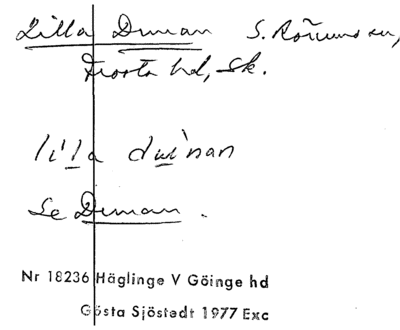 Lilla Dunan S. Rörums sn,
Frosta hd, Sk.
lilla du`nan
Se Dunan.
Nr 18236 Häglinge V Göinge hd
Gösta Sjöstedt 1977 Exc